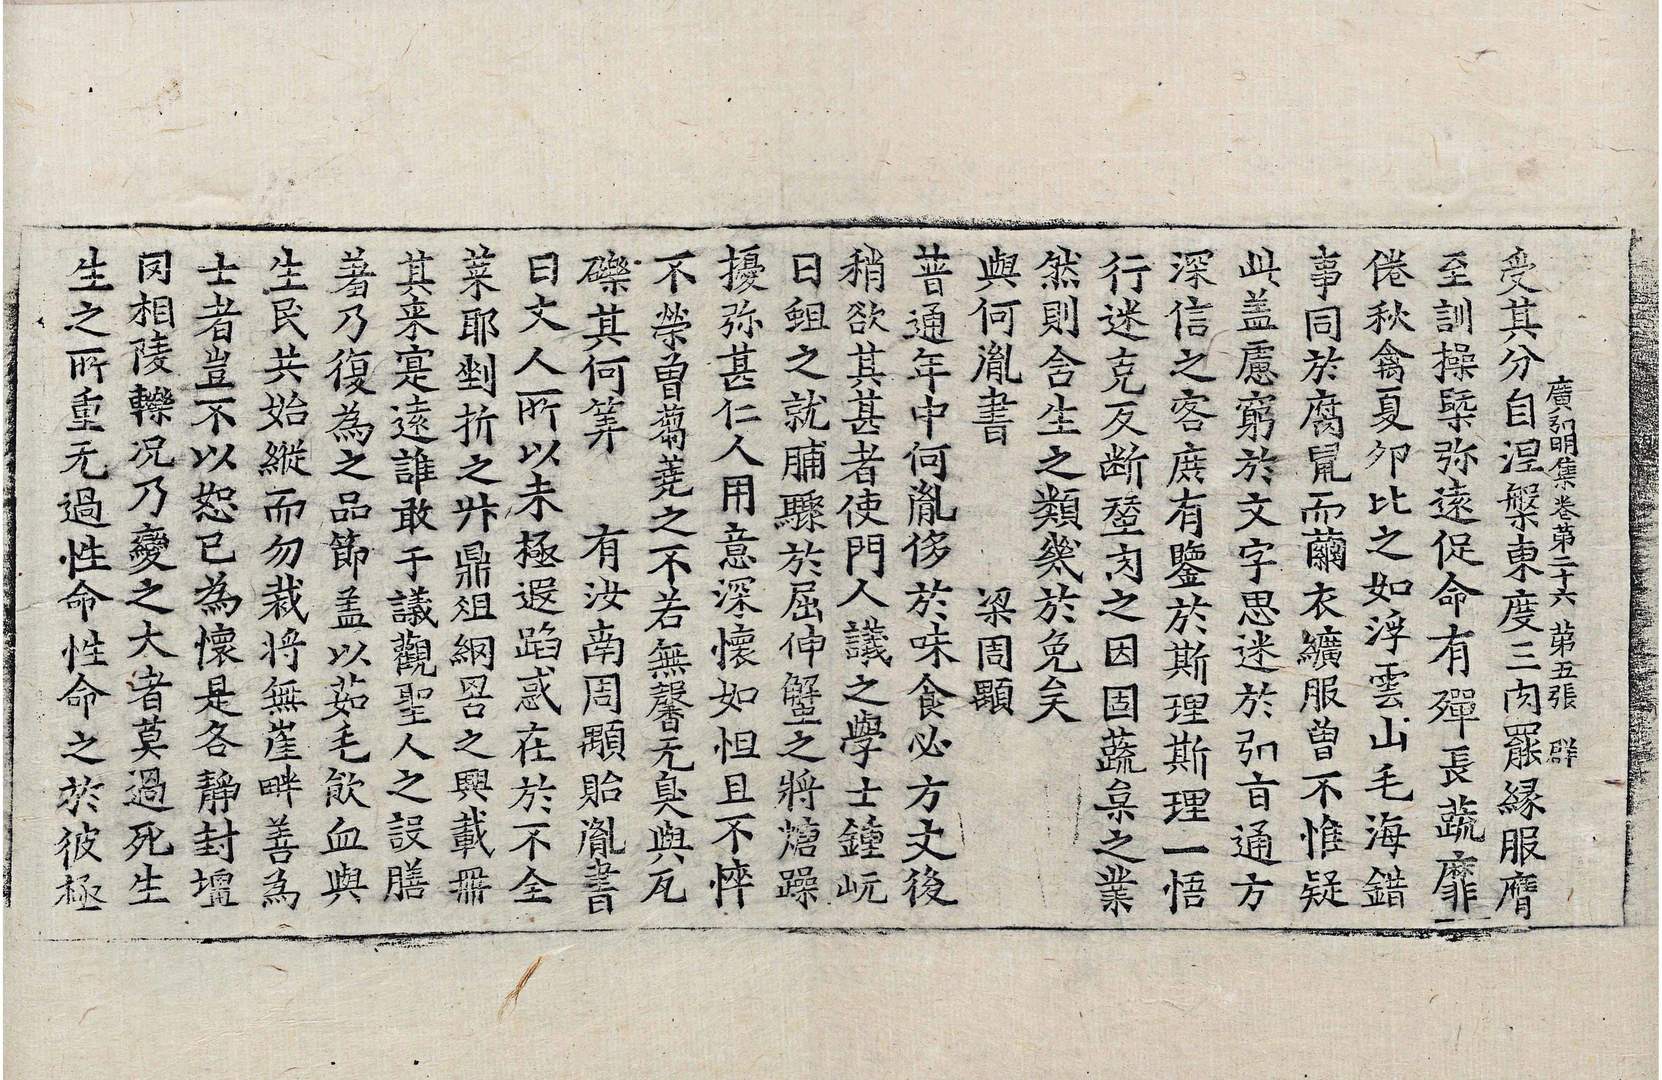 廣弘明集卷第二十六　第五張　群
受其分自涅槃東度三肉罷緣服膺
至訓操槩弥遠促命有殫長蔬靡
倦秋禽夏卵比之如浮雲山毛海錯
事同於腐鼠而繭衣纊服曾不惟疑
此盖慮窮於文字思迷於弘旨通方
深信之客庶有鑒於斯理斯理一悟
行迷克反断蝅肉之因固蔬枲之業
然則含生之類幾於免矣
與何胤書　　梁周顒
普通年中何胤侈於味食必方丈後
稍欲其甚者使門人議之學士鍾岏
曰䱉之就脯驟於屈伸蟹之將糖躁
擾弥甚仁人用意深懷如怛且不悴
不榮曾蒭蕘之不若無馨无臭與瓦
礫其何筭　　有汝南周顒貽胤書
曰丈人所以未極遐蹈惑在於不全
菜耶剉折之升鼎俎網罟之興載冊
其来寔遠誰敢于議觀聖人之設膳
著乃復為之品節盖以茹毛飲血與
生民共始縱而勿裁将無崖畔善為
士者豈不以恕已為懷是各靜封壃
罔相陵轢况乃變之大者莫過死生
生之所重无過性命性命之於彼極